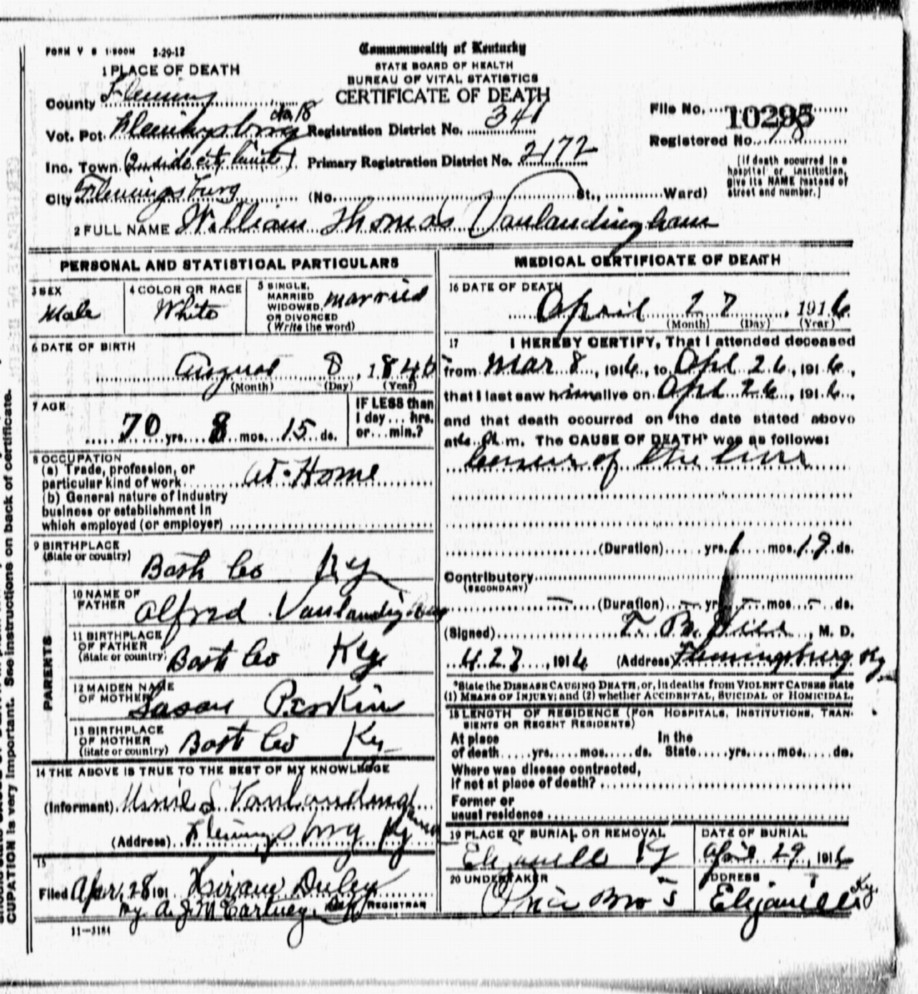 FORM V S 1-500M 2-29-12
Commonwealth of Kentucky
STATE BOARD OF HEALTH
BUREAU OF VITAL STATISTICS
CERTIFICATE OF DEATH
1 PLACE OF DEATH
County Fleming
Vot. Pct. Flemingsburg No 18 Registration District No. 341
File No. 10295
Registered No.
Inc. Town (Inside city limits) Primary Registration District No. 2172
City Flemingsburg (No. St., Ward)
[If death occurred in a hospital or institution, give its NAME instead of street and number.]
2 FULL NAME William Thomas Vanlandingham
PERSONAL AND STATISTICAL PARTICULARS
3 SEX Male
4 COLOR OR RACE White
5 SINGLE, MARRIED WIDOWED, OR DIVORCED (Write the word) married
6 DATE OF BIRTH
August 8, 1846
(Month) (Day) (Year)
7 AGE
70 yrs. 8 mos. 15 ds.
IF LESS than 1 day... hrs. or... min.?
8 OCCUPATION
(a) Trade, profession, or particular kind of work At-Home
(b) General nature of industry business or establishment in which employed (or employer)
9 BIRTHPLACE (State or country) Bath Co Ky
PARENTS
10 NAME OF FATHER Alfred Vanlandingham
11 BIRTHPLACE OF FATHER (State or country) Bath Co Ky
12 MAIDEN NAME OF MOTHER Perkin
13 BIRTHPLACE OF MOTHER (State or country) Bath Co Ky
14 THE ABOVE IS TRUE TO THE BEST OF MY KNOWLEDGE
(Informant) Vanlandingham
(Address) Flemingsburg Ky
15
Filed Apr. 28 191 Duley
By A. J. McCartney REGISTRAR
11-3184
MEDICAL CERTIFICATE OF DEATH
16 DATE OF DEATH
April 27, 1916
(Month) (Day) (Year)
17 I HEREBY CERTIFY, That I attended deceased
from Mar 8, 1916, to Apl 26, 1916,
that I last saw him alive on Apl 26, 1916,
and that death occurred on the date stated above
at m. The CAUSE OF DEATH* was as follows:
Cancer of the liver
(Duration) yrs. 1 mos. 19 ds.
Contributory (SECONDARY)
(Duration) yrs. mos. ds.
(Signed) T. B. , M. D.
4.27, 1916 (Address) Flemingsburg Ky
*State the DISEASE CAUSING DEATH, or, in deaths from VIOLENT CAUSES state (1) MEANS OF INJURY; and (2) whether ACCIDENTAL, SUICIDAL or HOMICIDAL.
18 LENGTH OF RESIDENCE (FOR HOSPITALS, INSTITUTIONS, TRANSIENTS OR RECENT RESIDENTS)
At place of death yrs. mos. ds. In the State yrs. mos. ds.
Where was disease contracted, if not at place of death?
Former or usual residence
19 PLACE OF BURIAL OR REMOVAL Elizaville Ky
DATE OF BURIAL April 29, 1916
20 UNDERTAKER Price Bro's
ADDRESS Elizaville Ky.
CUPATION is very important. See instructions on back of certificate.